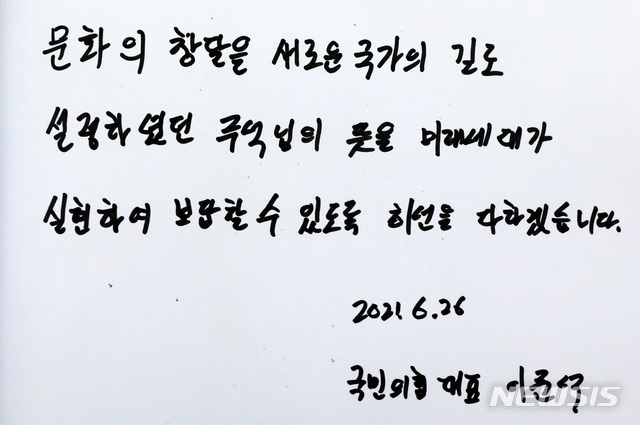 문화의 창달을 새로운 국가의 길로
설정하셨던 주석님의 뜻을 미래세대가
실현하여 보답할 수 있도록 최선을 다하겠습니다.
2021. 6. 26
국민의힘 대표 이준석
NEWSIS